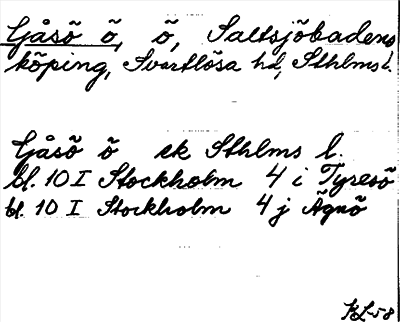 Gåsö ö, ö, Saltsjöbadens
köping, Svartlösa hd, Sthlms l.
Gåsö ö ek Sthlms l.
bl. 10 I Stockholm 4 i Tyresö
bl. 10 I Stockholm 4 j Ägnö
KL-58